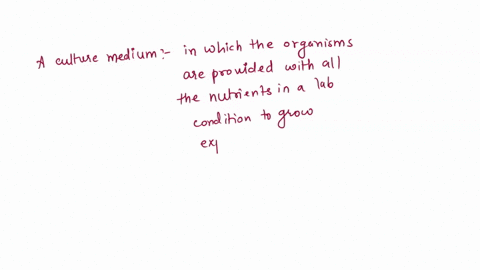 A culture medium:- in which the organisms
are provided with all
the nutrients in a lab
condition to grow
exp